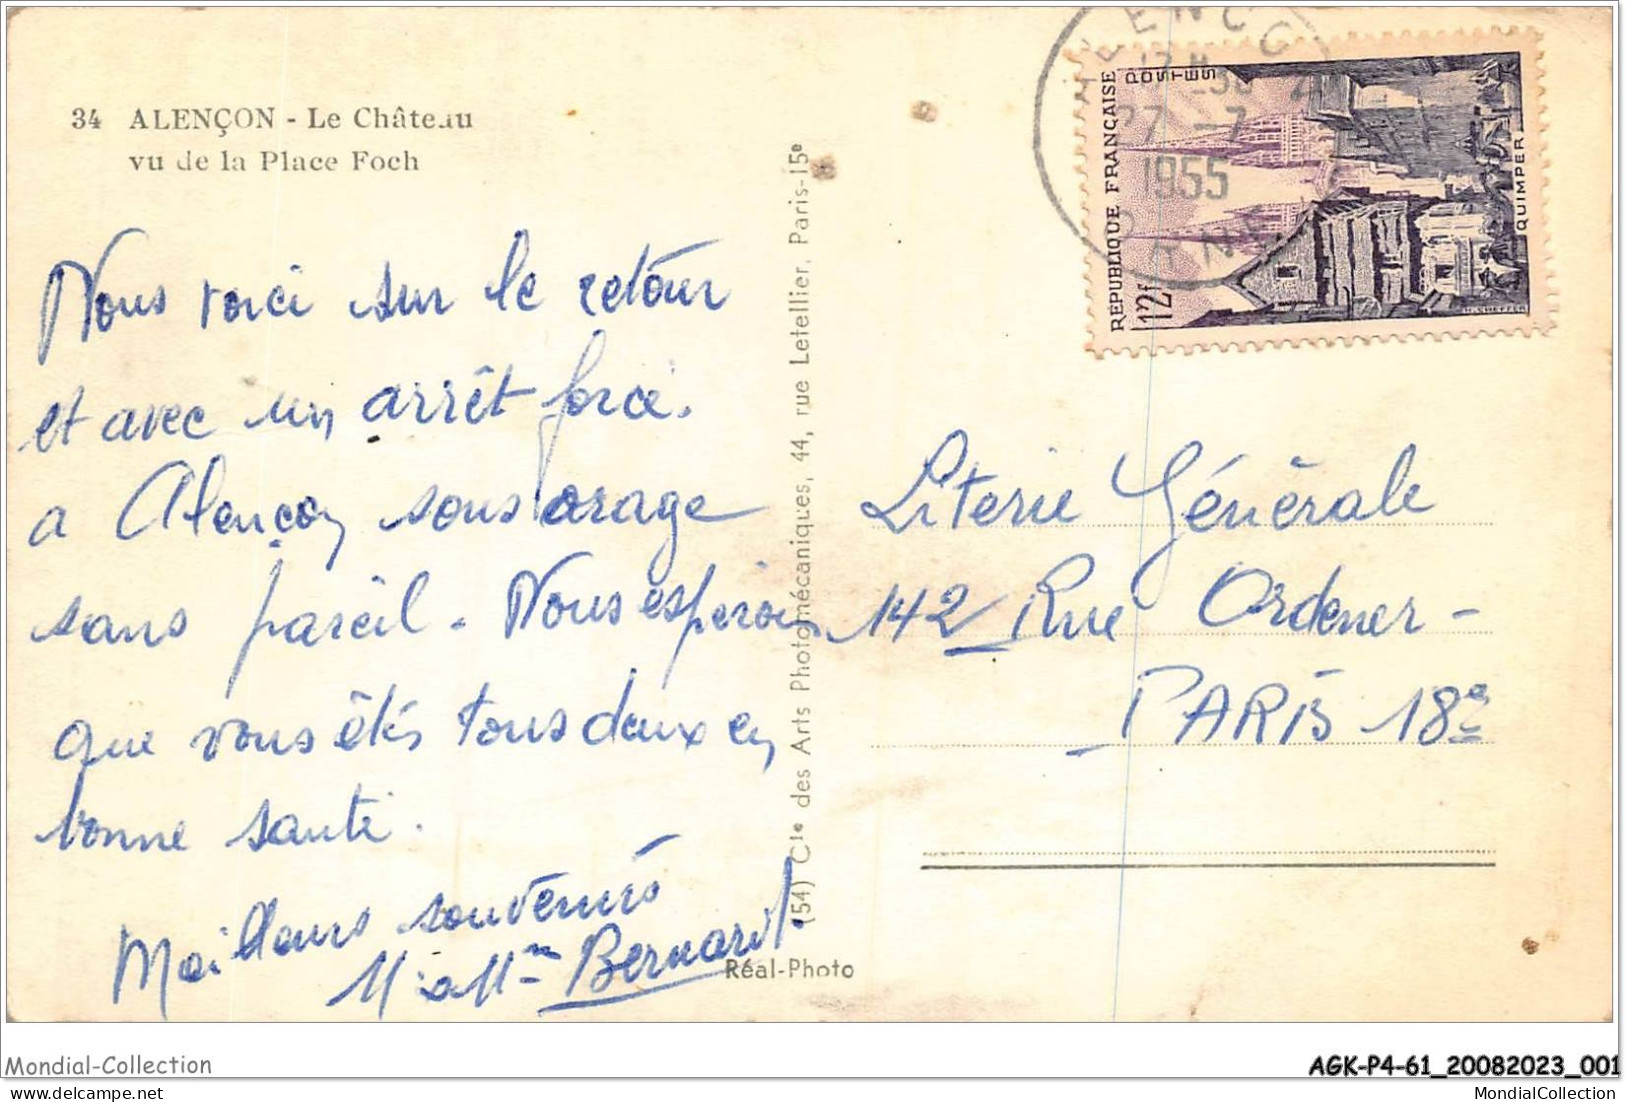 34 ALENÇON - Le Château
vu de la Place Foch
Nous voici sur le retour
et avec un arrêt forcé.
a Alençon sous orage
sans pareil. Nous esperons
que vous êtes tous deux en
bonne santé.
Meilleurs souvenirs
Mr & Mme Bernard
(54) Cie des Arts Photomécaniques, 44, rue Letellier, Paris-15e
Réal-Photo
ALENCON
17H30
27 -7
1955
ORNE
REPUBLIQUE FRANÇAISE
POSTES
12f
QUIMPER
Literie Générale
142 Rue Ordener -
PARIS 18e
Mondial-Collection
AGK-P4-61_20082023_001
MondialCollection